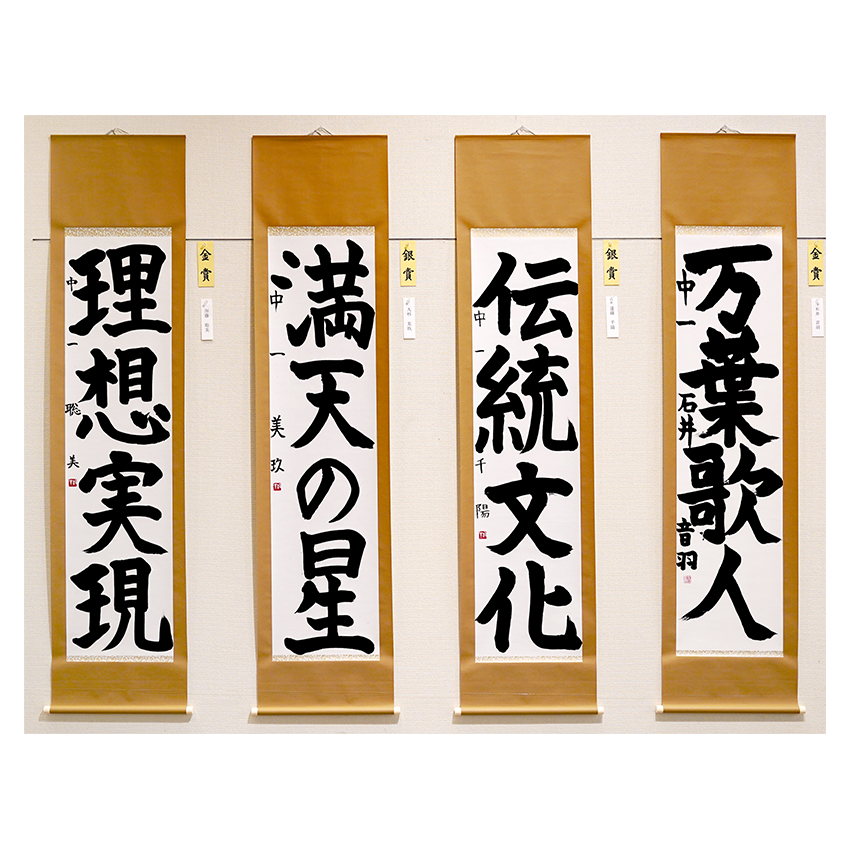 理想実現
中一 聡美
金賞
満天の星
中一 美玖
銀賞
伝統文化
中一 千陽
銀賞
万葉歌人
中一 石井音羽
金賞